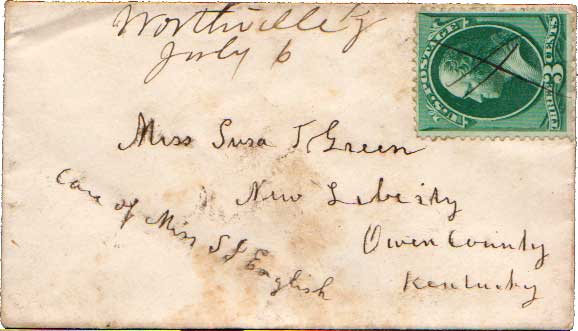 Worthville Ky
July 6
U.S. POSTAGE
3
THREE CENTS
Miss Susa T Green
New Liberty
Owen County
Kentucky
Care of Miss S J English